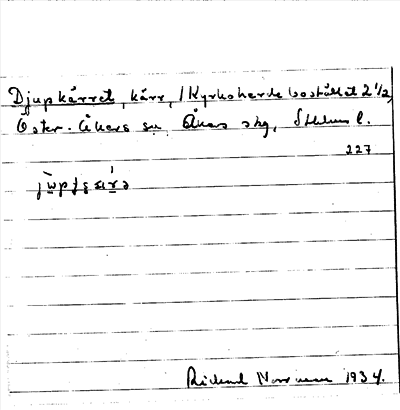 Djupkärret, kärr, / Kyrkoherdebostället 2 1/2,
Öster-Åkers sn Åkers skg, Sthlms l.
227
Rickard 1934.